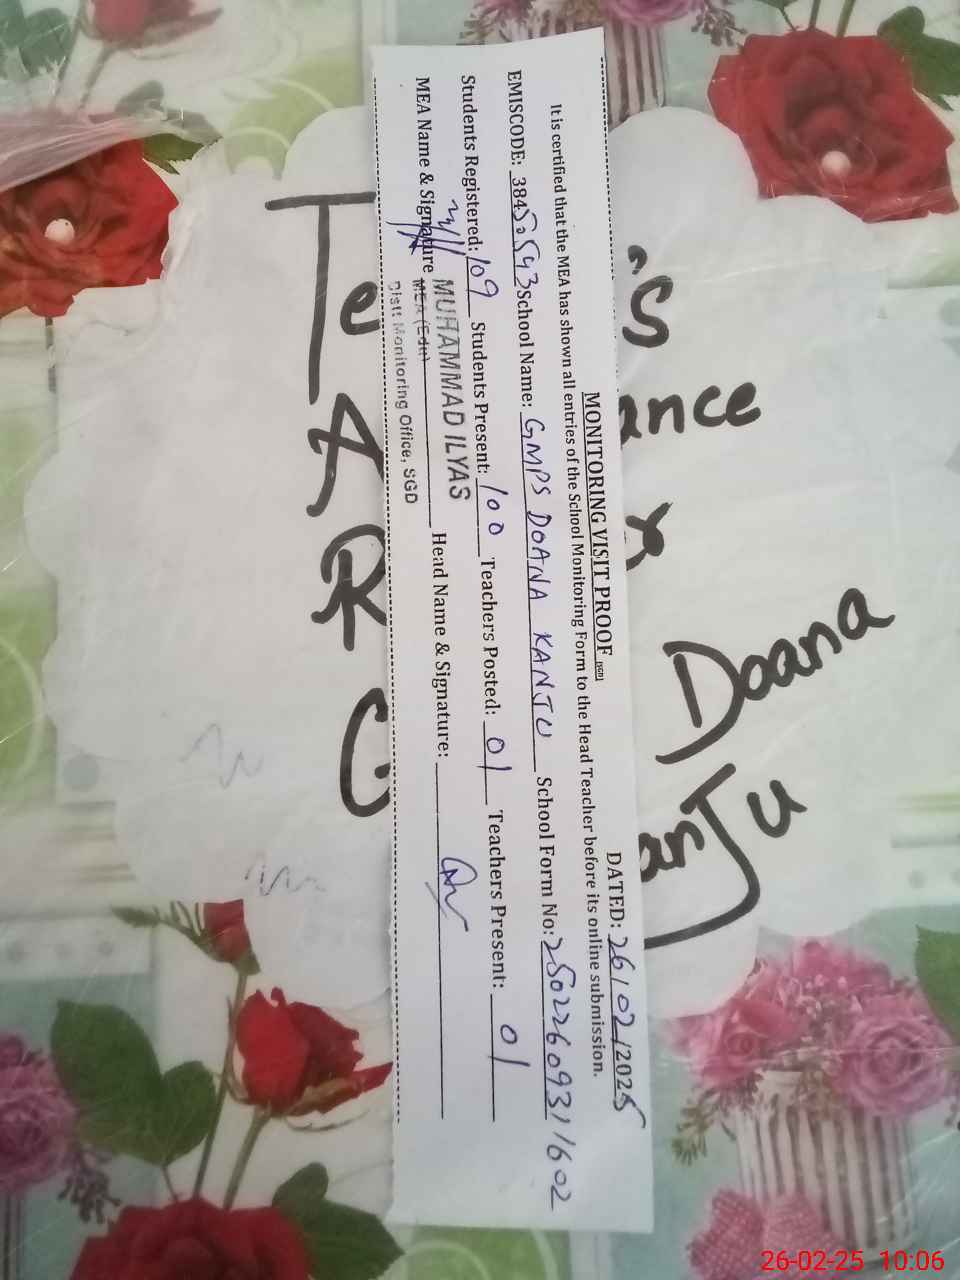 MONITORING VISIT PROOF [SGD]
DATED: 26/02/2025
It is certified that the MEA has shown all entries of the School Monitoring Form to the Head Teacher before its online submission.
EMISCODE: 38450543 School Name: GMPS DOANA KANJU School Form No: 25022609311602
Students Registered: 109 Students Present: 100 Teachers Posted: 01 Teachers Present: 01
MEA Name & Signature MUHAMMAD ILYAS Head Name & Signature:
MEA (Edu)
Distt Monitoring Office, SGD
Doana
26-02-25 10:06